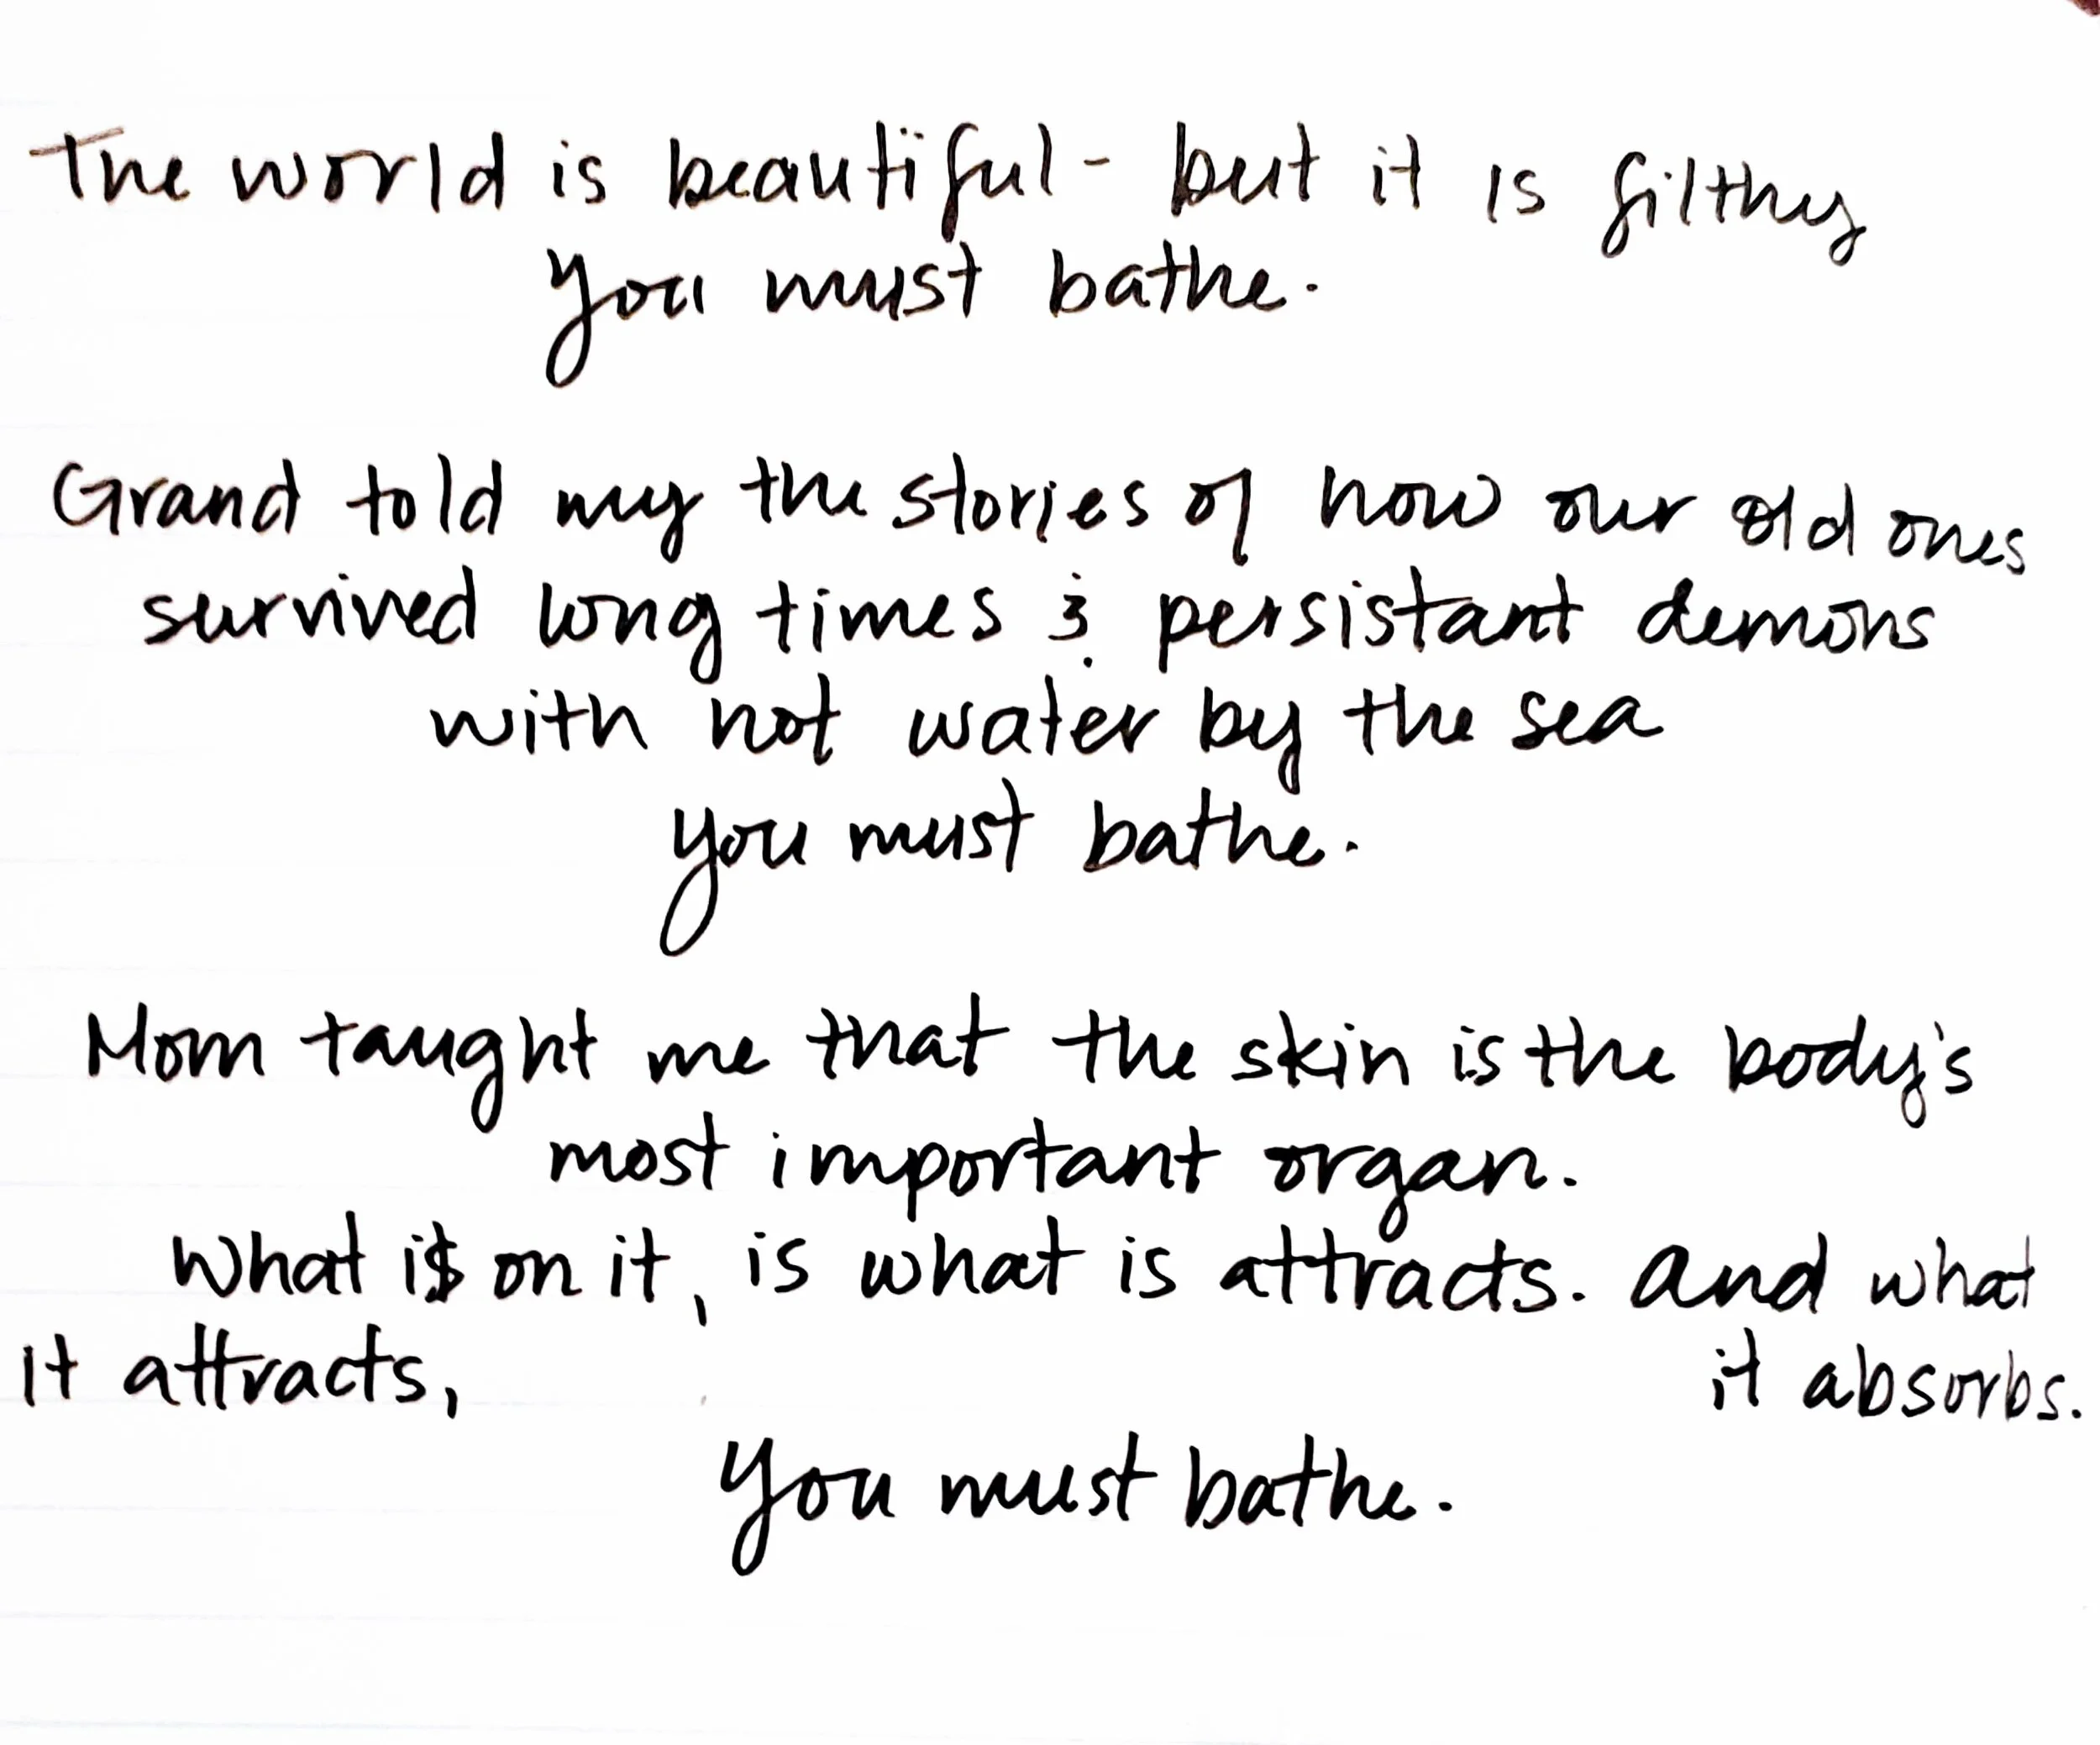 The world is beautiful - but it is filthy
you must bathe.
Grand told my the stories of how our old ones
survived long times & persistant demons
with hot water by the sea
you must bathe.
Mom taught me that the skin is the body's
most important organ.
What is on it, is what is attracts. And what
it attracts, it absorbs.
You must bathe.